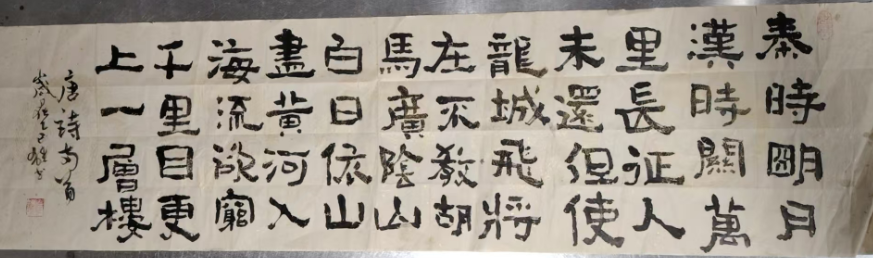 秦時朙月
漢時關萬
里長征人
未還但使
龍城飛將
在不教胡
馬廣陰山
白日依山
盡黃河入
海流欲窮
千里目更
上一層樓
唐詩兩首